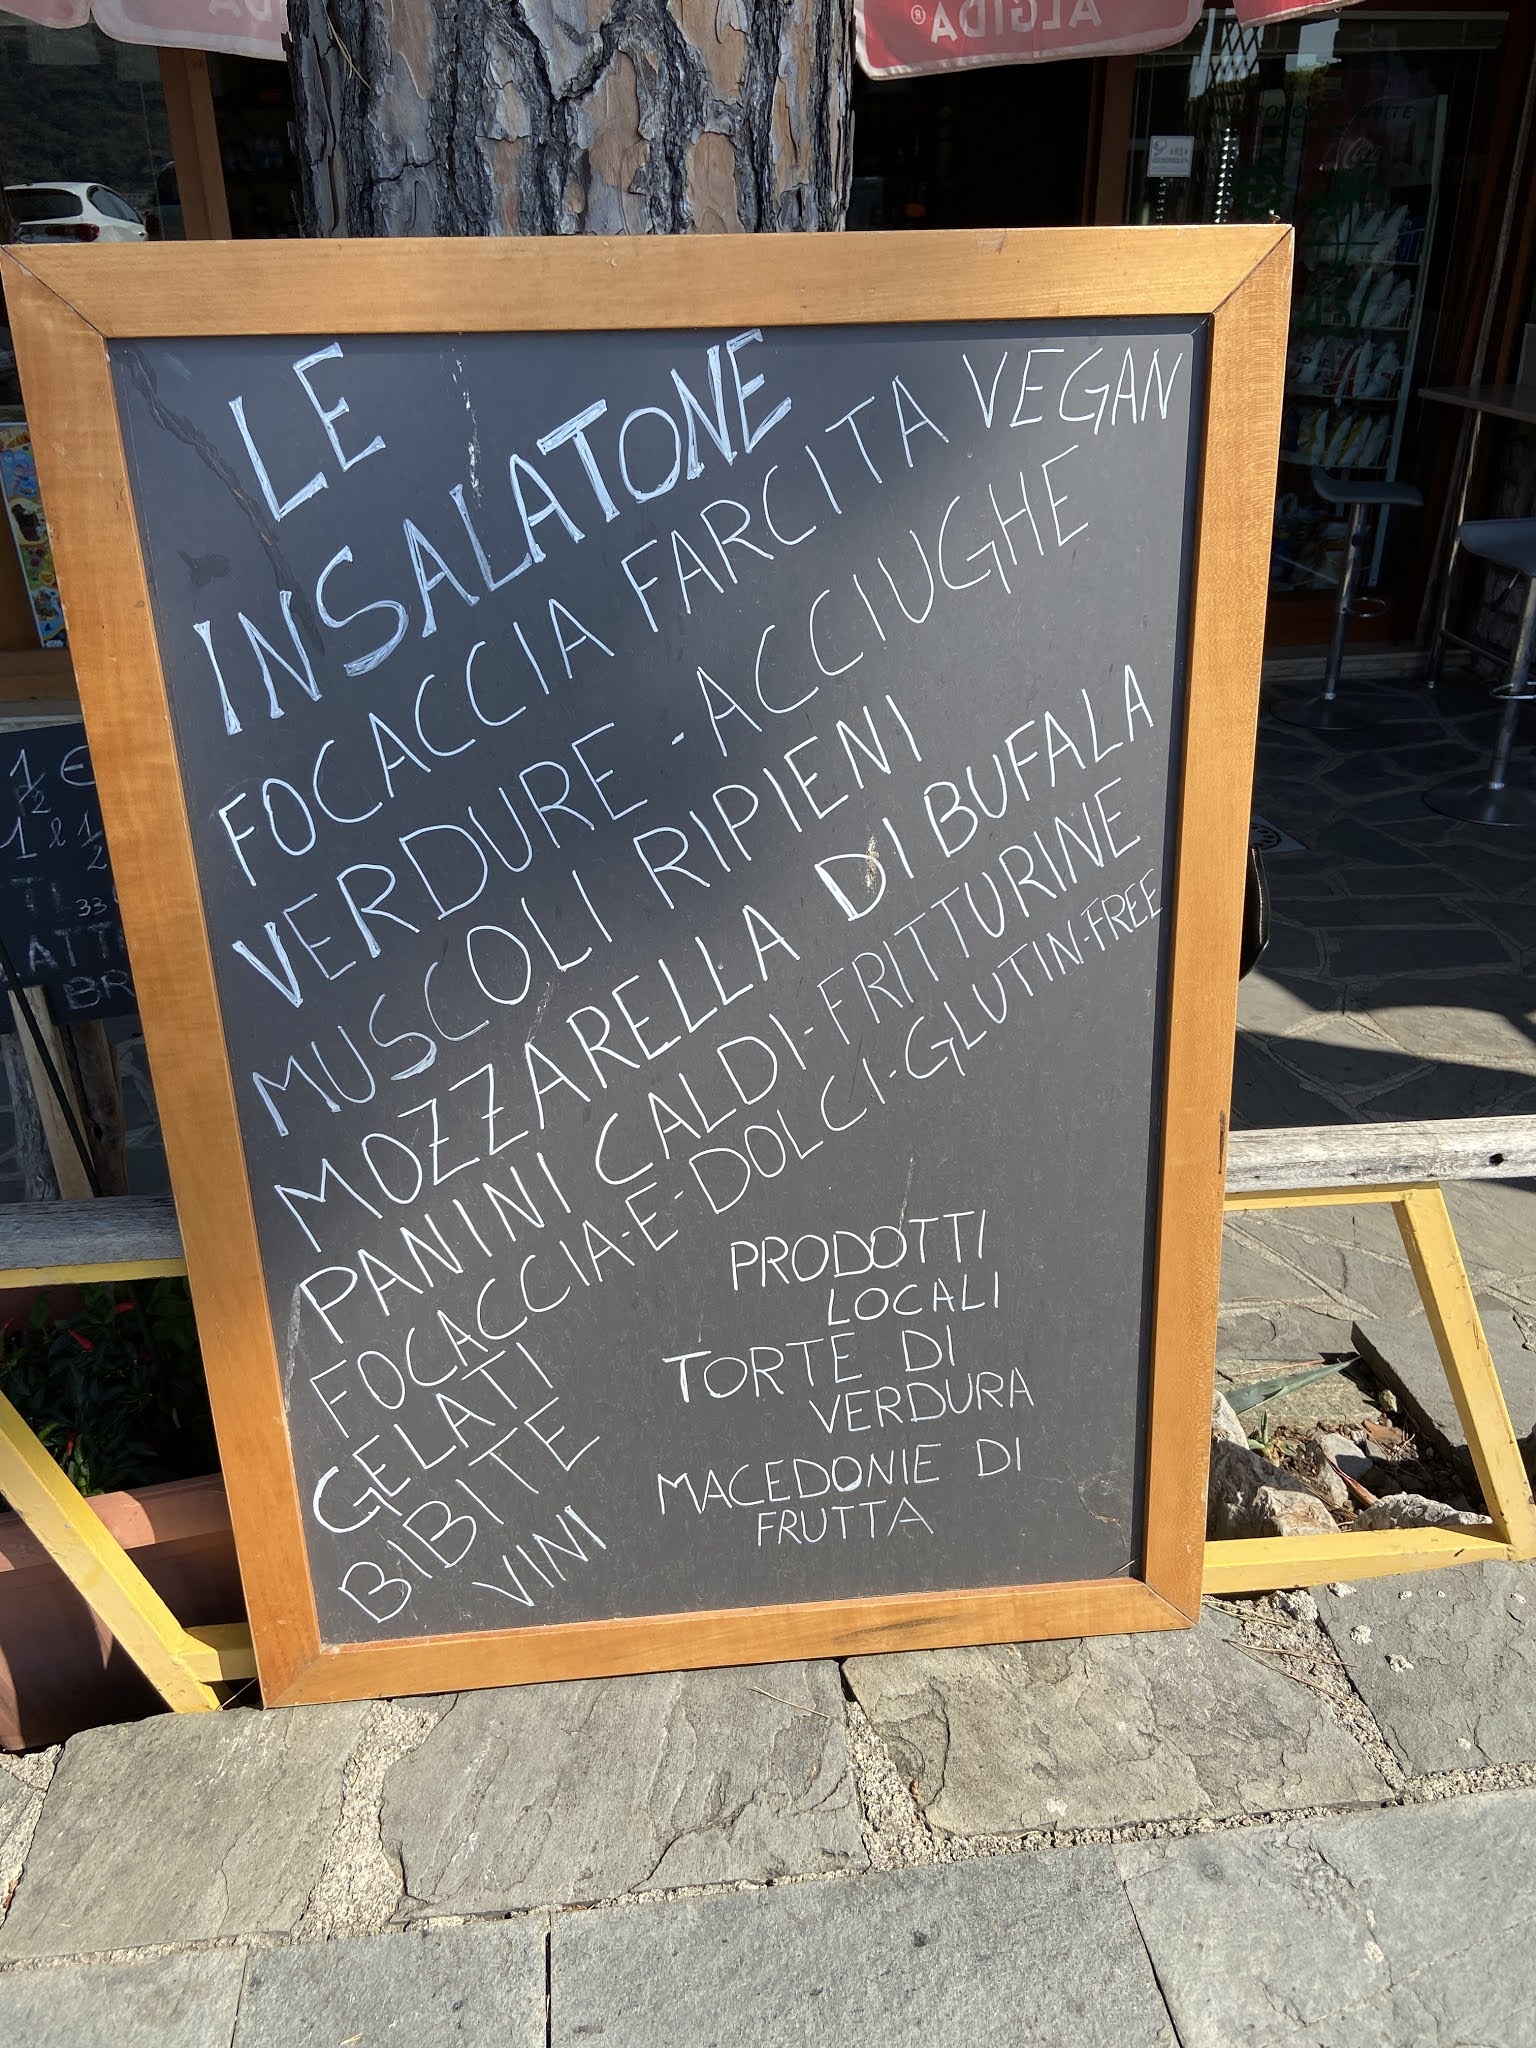 ALGIDA®
LE
INSALATONE
FOCACCIA FARCITA VEGAN
VERDURE - ACCIUGHE
MUSCOLI RIPIENI
MOZZARELLA DI BUFALA
PANINI CALDI-FRITTURINE
FOCACCIA-E-DOLCI-GLUTIN-FREE
GELATI
BIBITE
VINI
PRODOTTI
LOCALI
TORTE DI
VERDURA
MACEDONIE DI
FRUTTA
1/2 €
1 l 1/2
33
BR